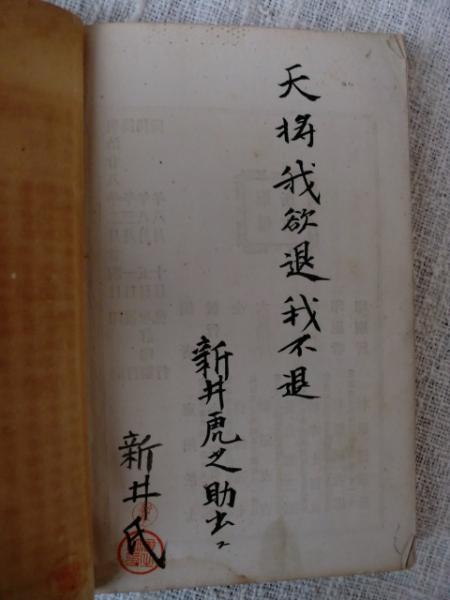 天将我欲退我不退
新井虎之助書
新井氏